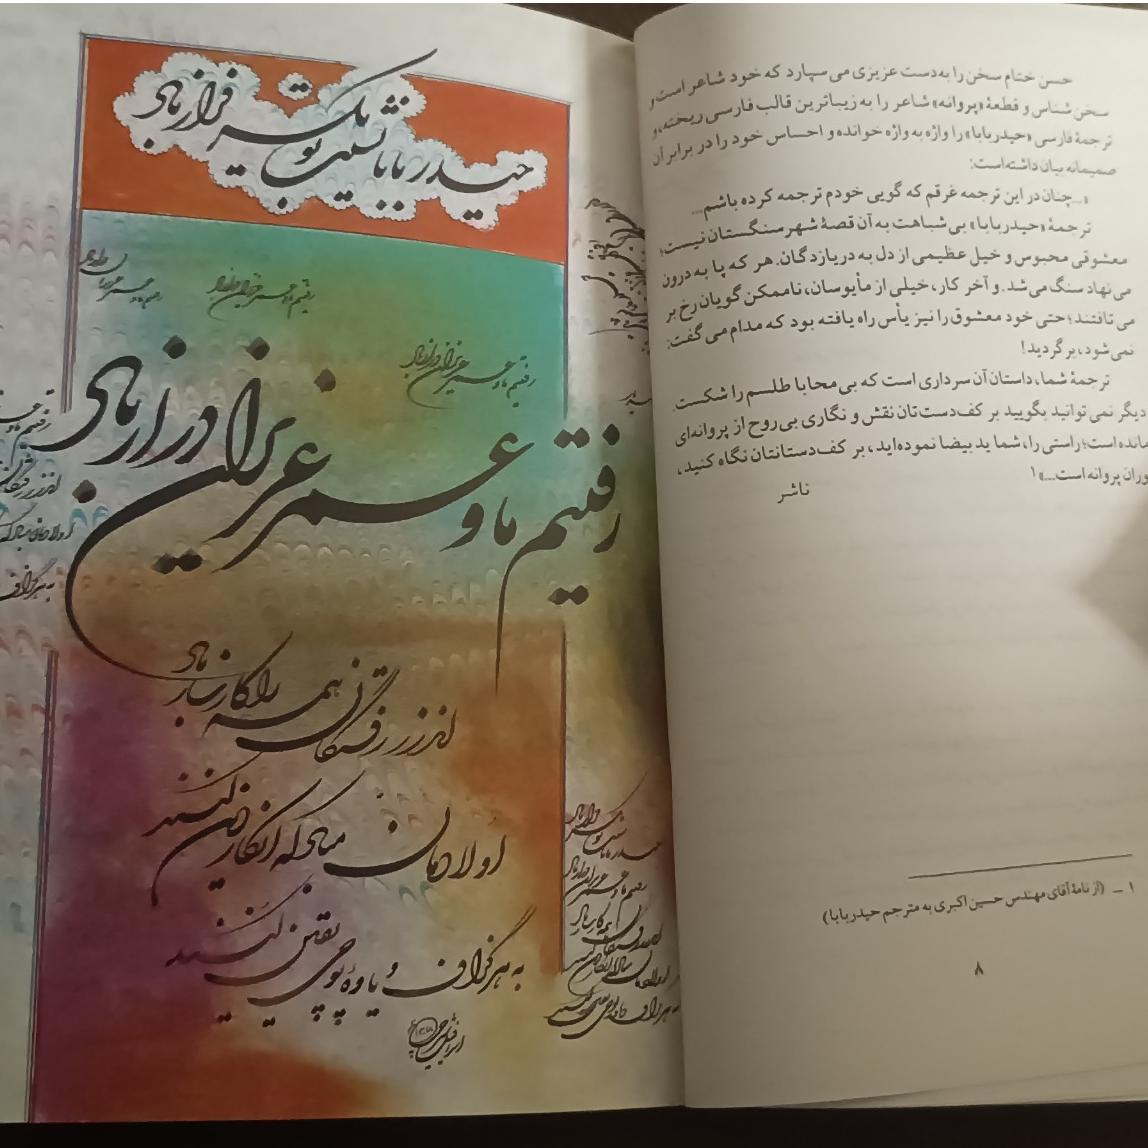 حسن ختام سخن را به‌دست عزیزی می‌سپارد که خود شاعر است و
سخن‌شناس و قطعهٔ «پروانه» شاعر را به زیباترین قالب فارسی ریخته، و
ترجمهٔ فارسی «حیدربابا» را واژه به واژه خوانده و احساس خود را در برابر آن
صمیمانه بیان داشته‌است:
«...چنان در این ترجمه غرقم که گویی خودم ترجمه کرده باشم...
ترجمهٔ «حیدربابا» بی‌شباهت به آن قصهٔ شهر سنگستان نیست؛
معشوقی محبوس و خیل عظیمی از دل به دریازدگان. هر که پا به درون
می‌نهاد سنگ می‌شد. و آخر کار، خیلی از مأیوسان، ناممکن گویان رخ بر
می‌تافتند؛ حتی خود معشوق را نیز یأس راه یافته بود که مدام می‌گفت:
نمی‌شود، برگردید!
ترجمهٔ شما، داستان آن سرداری است که بی‌محابا طلسم را شکست.
دیگر نمی‌توانید بگویید بر کف‌دست‌تان نقش و نگاری بی‌روح از پروانه‌ای
مانده است؛ راستی را، شما ید بیضا نموده‌اید، بر کف دستانتان نگاه کنید،
وران پروانه است...»۱
ناشر
۱ – (از نامهٔ آقای مهندس حسین اکبری به مترجم حیدربابا)
۸
حیدربابا نشیب تو یکسر فراز باد
رفتیم ما و عمر عزیزان دراز باد
اندرز رفتگان همه را کارساز باد
اولادمان مبادکه انکارمان کنند
به هر گزاف و یاوهٔ پوچی یقین کنند